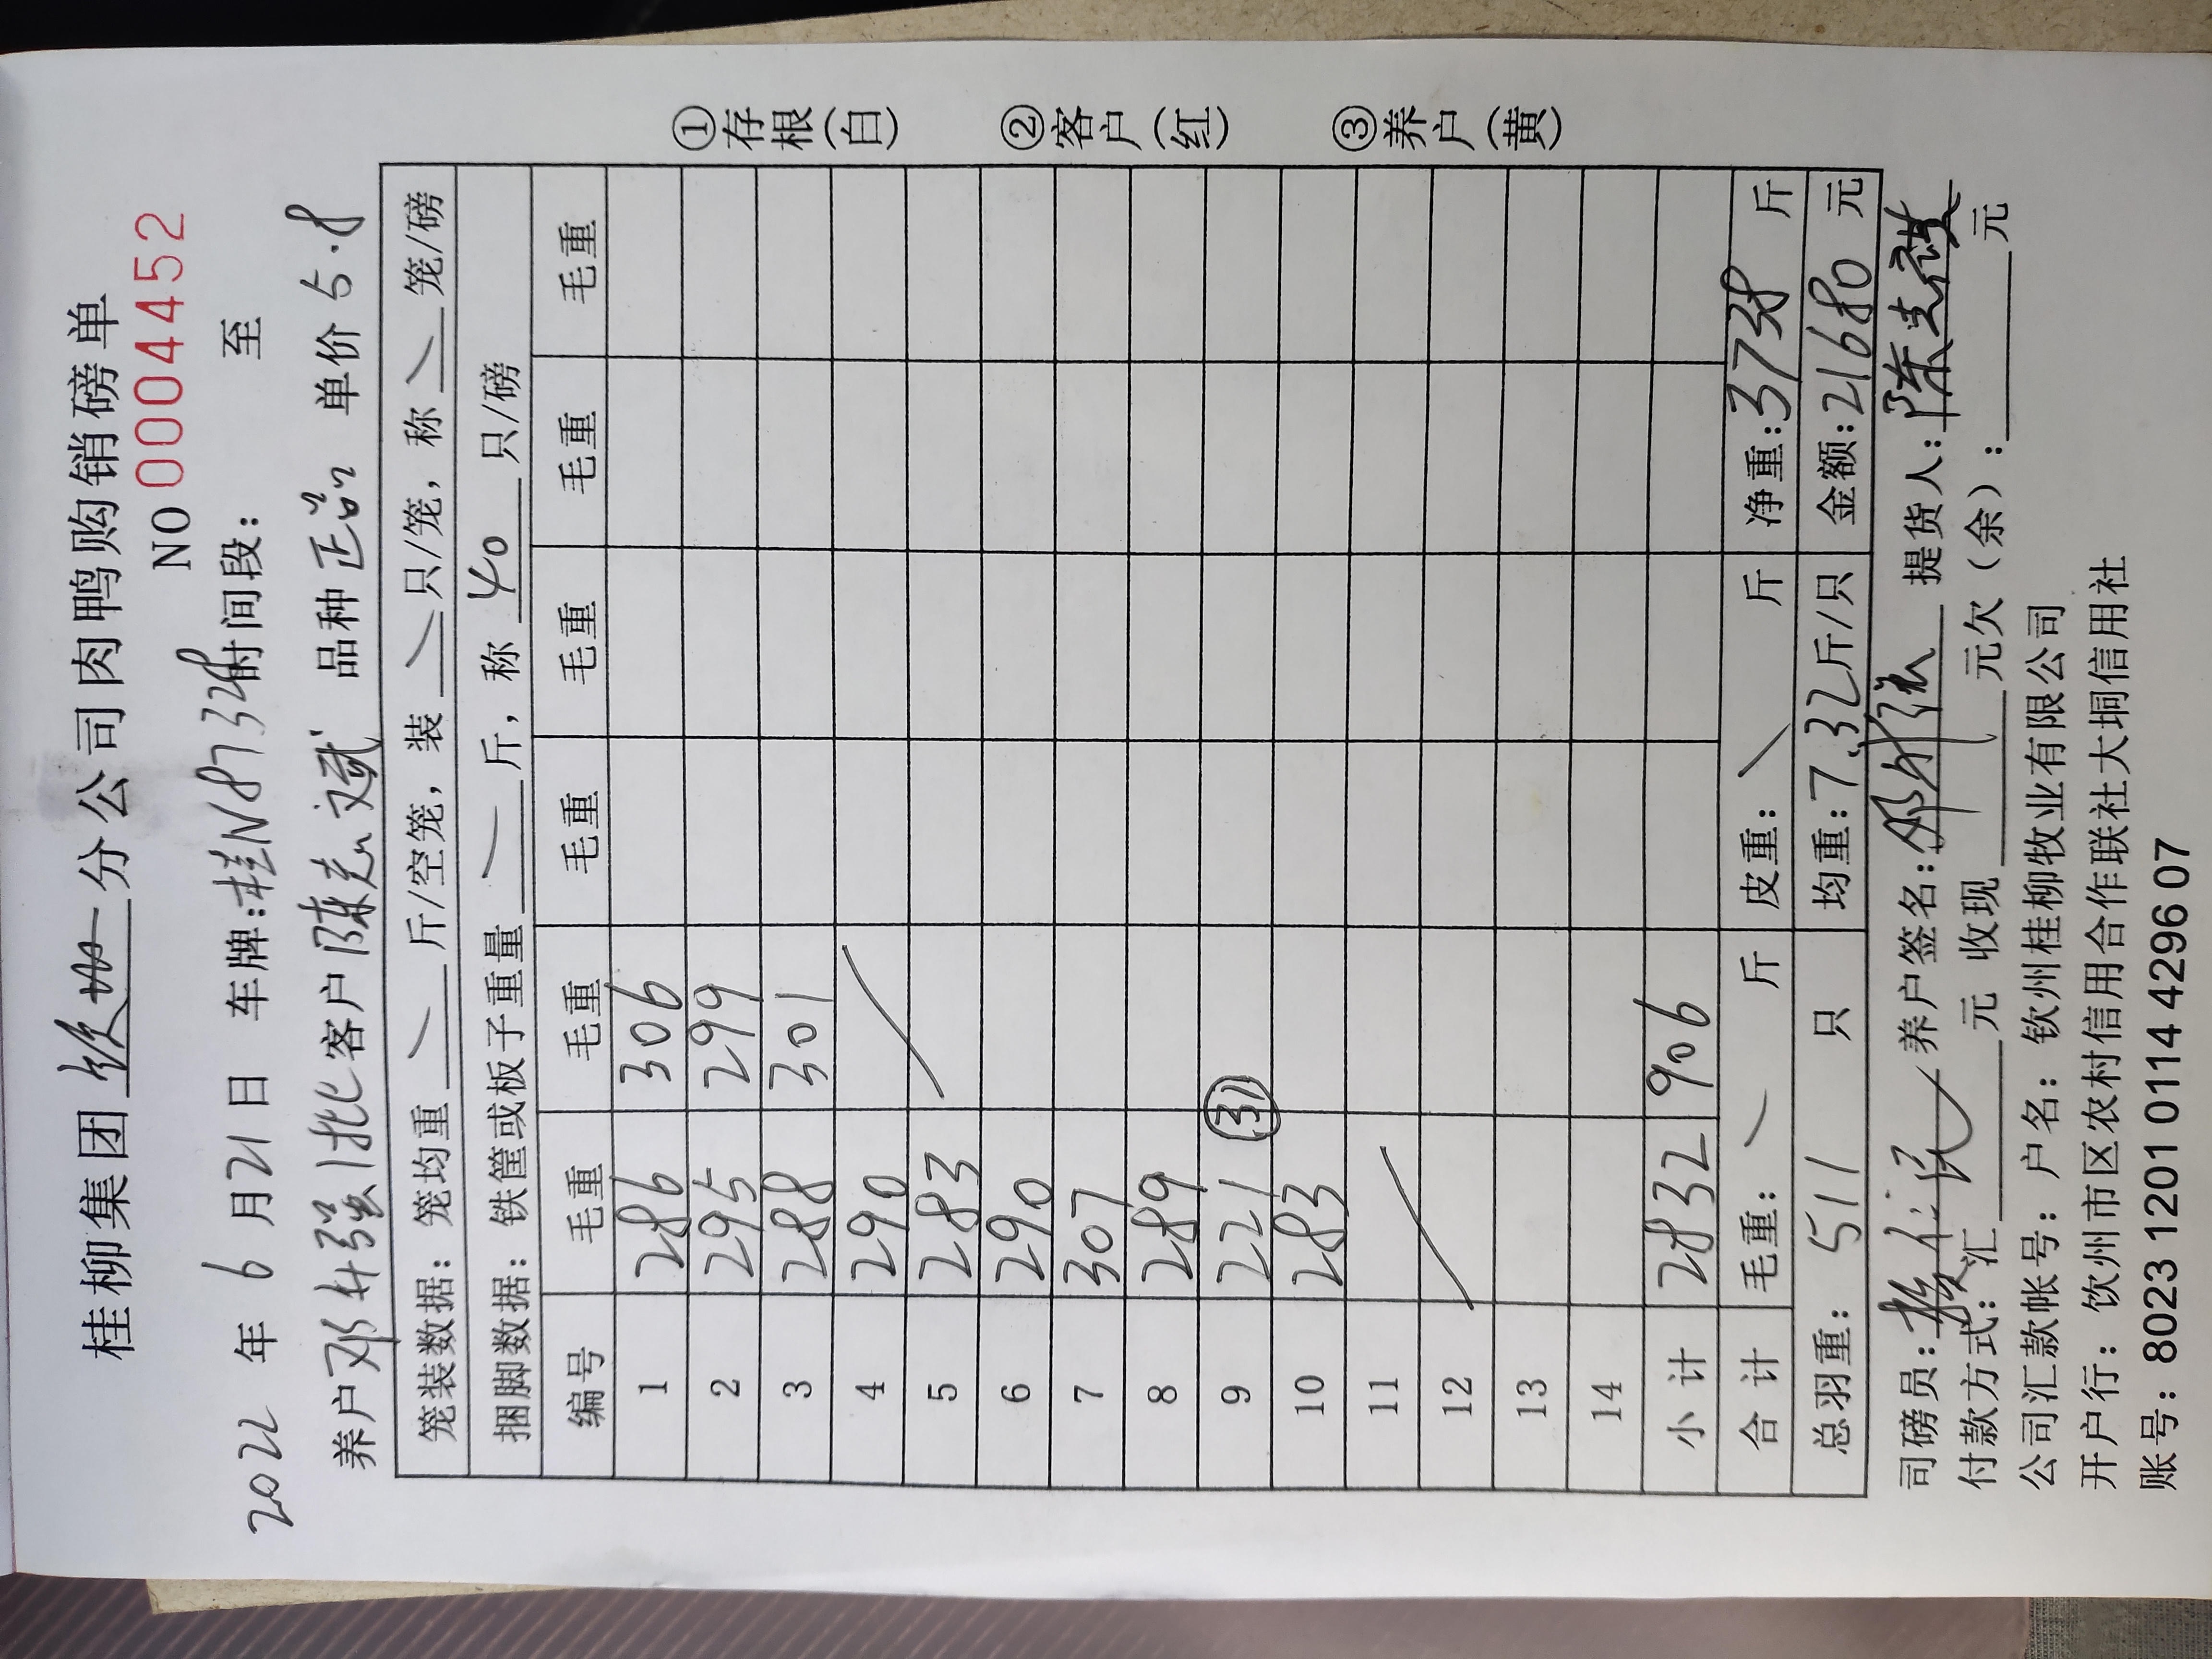 桂柳集团 钦州 分公司肉鸭购销磅单
NO 0004452
2022 年 6 月 21 日 车牌:桂N87328 时间段: 至
养户 邓轩强 1批 客户 陈志斌 品种 正品 单价 5.8
笼装数据: 笼均重 \ 斤/空笼, 装 \ 只/笼, 称 \ 笼/磅
捆脚数据: 铁筐或板子重量 \ 斤, 称 40 只/磅
编号 毛重 毛重 毛重 毛重 毛重 毛重
1 286 306
2 295 299
3 288 301
4 290
5 283
6 290
7 307
8 289
9 221 (31)
10 283
11
12
13
14
小计 2832 906
合计 毛重: \ 斤 皮重: \ 斤 净重: 3738 斤
总羽重: 511 只 均重: 7.32 斤/只 金额: 21680 元
司磅员: 养户签名: 提货人: 陈志斌
付款方式: 汇 元 收现 元欠(余): 元
公司汇款帐号: 户名: 钦州桂柳牧业有限公司
开户行: 钦州市区农村信用合作联社大垌信用社
账号: 8023 1201 0114 4296 07
①存根(白)
②客户(红)
③养户(黄)